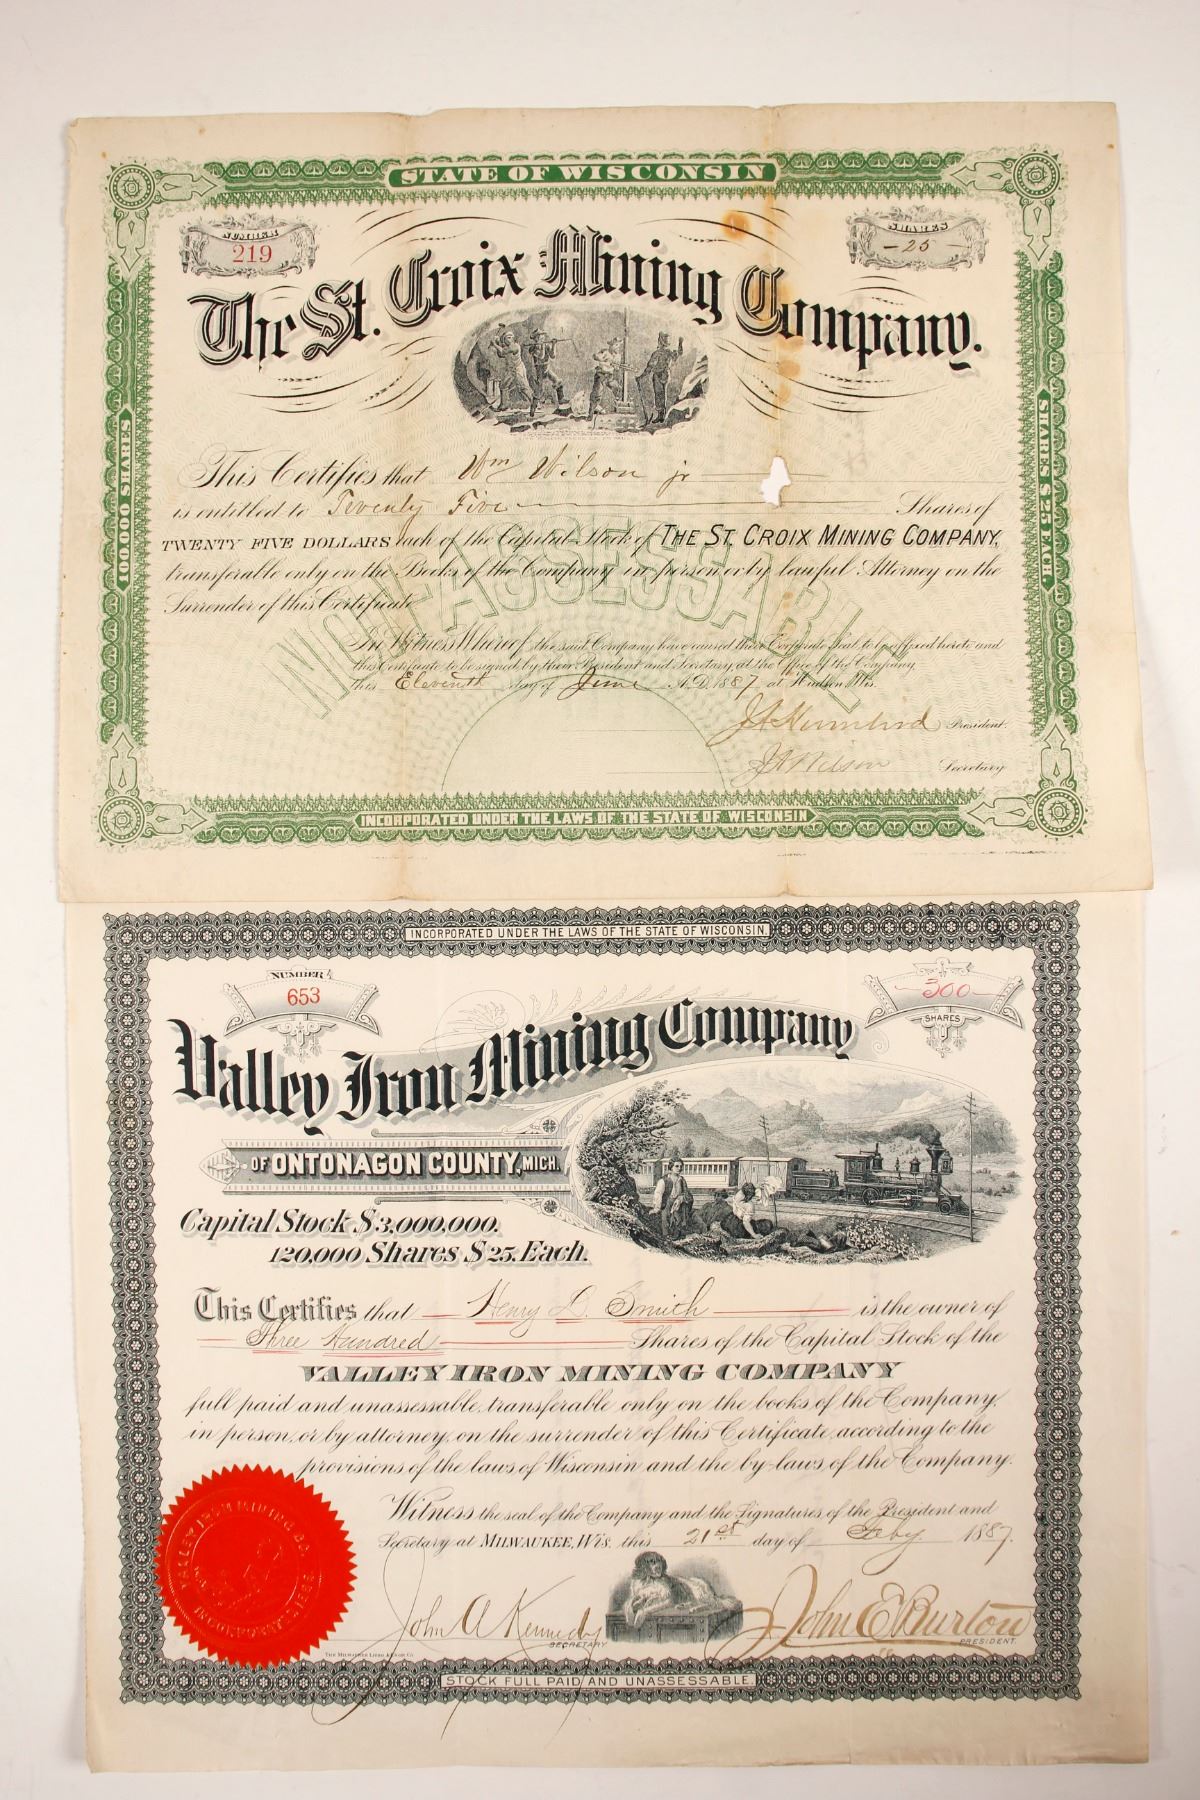 STATE OF WISCONSIN
NUMBER
219
SHARES
25
The St. Croix Mining Company.
100,000 SHARES
SHARES $25 EACH.
This Certifies that Wm Wilson jr
is entitled to Twenty Five Shares of
TWENTY FIVE DOLLARS each of the Capital Stock of THE ST. CROIX MINING COMPANY,
transferable only on the Books of the Company in person or by lawful Attorney on the
Surrender of this Certificate
NOT ASSESSABLE
In Witness Whereof the said Company have caused their Corporate Seal to be affixed hereto and
this Certificate to be signed by their President and Secretary, at the Office of the Company,
this Eleventh day of June A.D. 1887 at Hudson Wis.
President.
J A Wilson Secretary
INCORPORATED UNDER THE LAWS OF THE STATE OF WISCONSIN
INCORPORATED UNDER THE LAWS OF THE STATE OF WISCONSIN.
NUMBER
653
300
SHARES
Valley Iron Mining Company
OF ONTONAGON COUNTY, MICH.
Capital Stock $3,000,000.
120,000 Shares $25. Each.
This Certifies that Henry D. Smith is the owner of
Three Hundred Shares of the Capital Stock of the
VALLEY IRON MINING COMPANY
full paid and unassessable, transferable only on the books of the Company,
in person, or by attorney, on the surrender of this Certificate, according to the
provisions of the laws of Wisconsin and the by-laws of the Company.
Witness the seal of the Company and the Signatures of the President and
Secretary at MILWAUKEE, WIS. this 21st day of Feby 1887.
VALLEY IRON MINING CO.
INCORPORATED 1886
John A Kennedy
SECRETARY
John E Burton
PRESIDENT.
STOCK FULL PAID AND UNASSESSABLE.